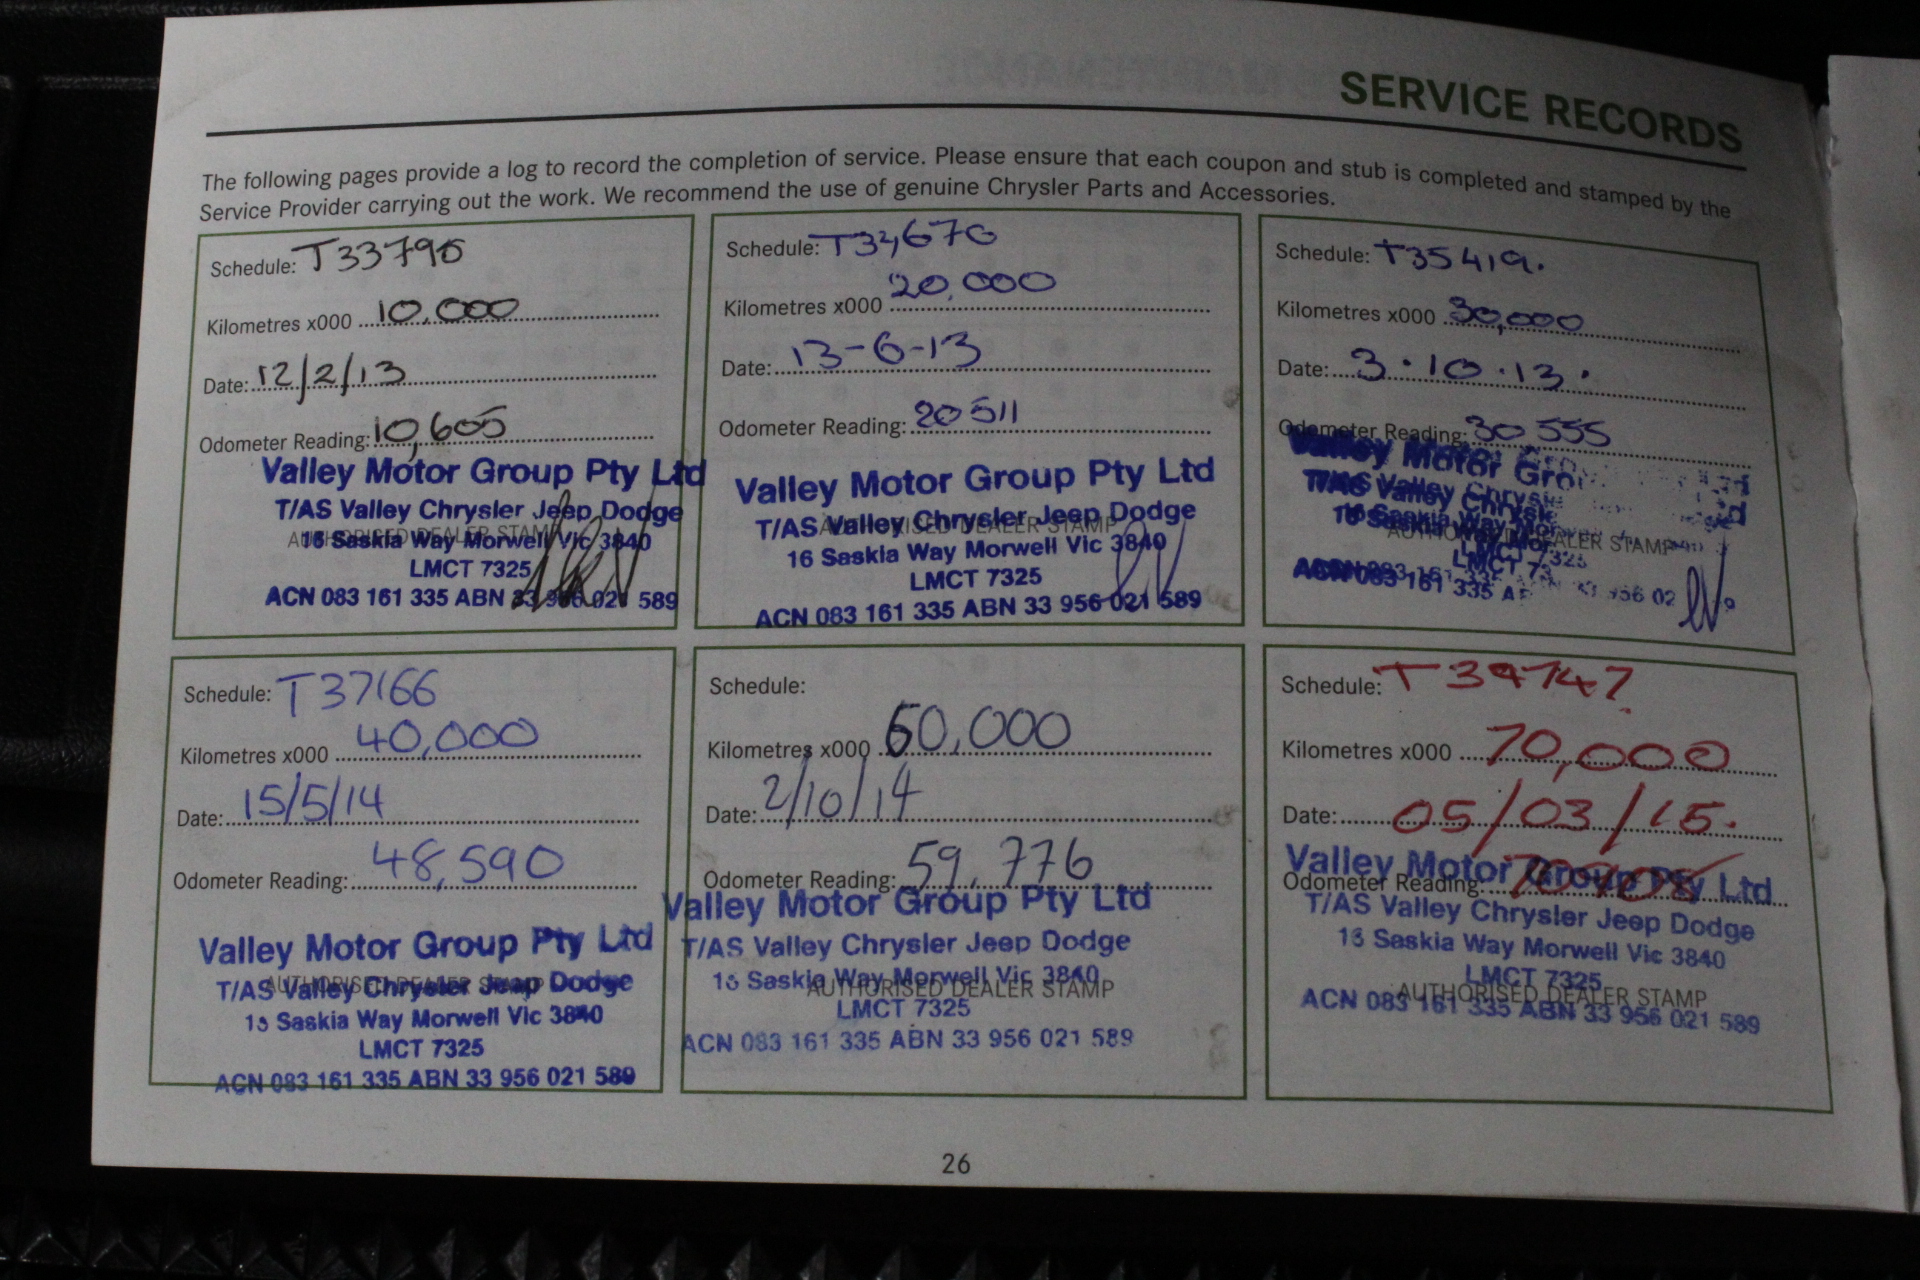 SERVICE RECORDS
The following pages provide a log to record the completion of service. Please ensure that each coupon and stub is completed and stamped by the
Service Provider carrying out the work. We recommend the use of genuine Chrysler Parts and Accessories.
Schedule: T33790
Kilometres x000 10,000
Date: 12/2/13
Odometer Reading: 10,605
Valley Motor Group Pty Ltd
T/AS Valley Chrysler Jeep Dodge
AUTHORISED DEALER STAMP
16 Saskia Way Morwell Vic 3840
LMCT 7325
ACN 083 161 335 ABN 33 956 021 589
Schedule: T34,670
Kilometres x000 20,000
Date: 13-6-13
Odometer Reading: 20511
Valley Motor Group Pty Ltd
T/AS Valley Chrysler Jeep Dodge
AUTHORISED DEALER STAMP
16 Saskia Way Morwell Vic 3840
LMCT 7325
ACN 083 161 335 ABN 33 956 021 589
Schedule: T35419.
Kilometres x000 30,000
Date: 3.10.13.
Odometer Reading: 30555
Valley Motor
T/AS Valley
16 Saskia Way
AUTHORISED DEALER STAMP
LMCT 7325
ACN 083 161 335 956 02
Schedule: T37166
Kilometres x000 40,000
Date: 15/5/14
Odometer Reading: 48,590
Valley Motor Group Pty Ltd
T/AS Valley Chrysler Jeep Dodge
AUTHORISED DEALER STAMP
16 Saskia Way Morwell Vic 3840
LMCT 7325
ACN 083 161 335 ABN 33 956 021 589
Schedule:
Kilometres x000 60,000
Date: 2/10/14
Odometer Reading: 59,776
Valley Motor Group Pty Ltd
T/AS Valley Chrysler Jeep Dodge
16 Saskia Way Morwell Vic 3840
AUTHORISED DEALER STAMP
LMCT 7325
ACN 083 161 335 ABN 33 956 021 589
Schedule: T39747
Kilometres x000 70,000
Date: 05/03/15.
Valley Motor Group Pty Ltd
Odometer Reading:
T/AS Valley Chrysler Jeep Dodge
16 Saskia Way Morwell Vic 3840
LMCT 7325
AUTHORISED DEALER STAMP
ACN 083 161 335 ABN 33 956 021 589
26